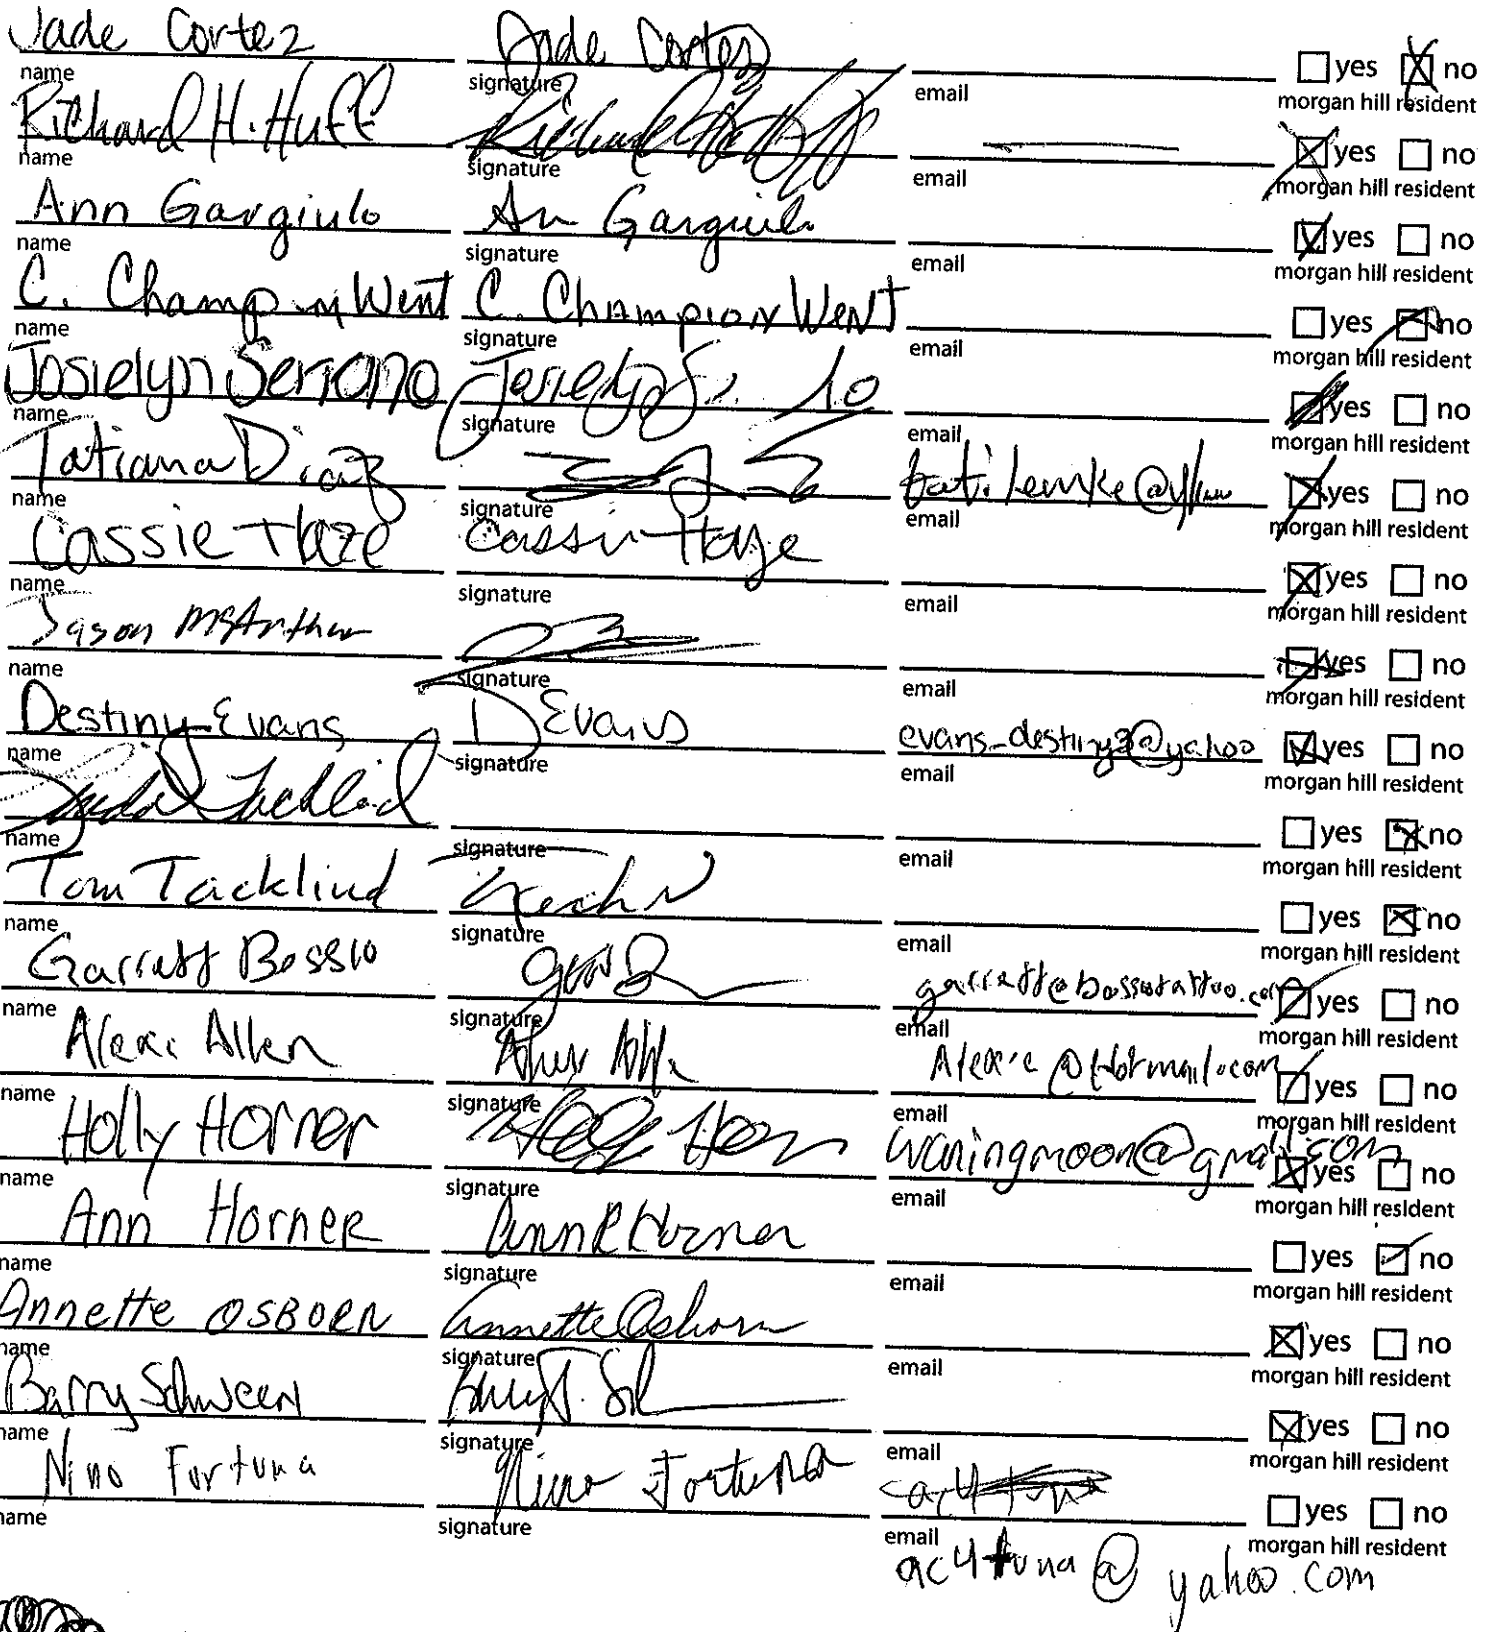 Jade Cortez Jade Cortez
name signature email yes no
morgan hill resident
Richard H. Huff Richard H. Huff
name signature email yes no
morgan hill resident
Ann Gargiulo Ann Gargiulo
name signature email yes no
morgan hill resident
C. Champion Went C. Champion Went
name signature email yes no
morgan hill resident
Josielyn Serrano
name signature email yes no
morgan hill resident
Tatiana Diaz
name signature email yes no
morgan hill resident
Cassie Haze Cassie Haze
name signature email yes no
morgan hill resident
Jason McArthur
name signature email yes no
morgan hill resident
Destiny Evans D Evans evans_destiny3@yahoo
name signature email yes no
morgan hill resident
Tacklind
name signature email yes no
morgan hill resident
Tom Tacklind
name signature email yes no
morgan hill resident
Garrett Bossio
name signature email yes no
morgan hill resident
Alexi Allen
name signature email yes no
morgan hill resident
Holly Horner waningmoon@gmail.com
name signature email yes no
morgan hill resident
Ann Horner Ann R Horner
name signature email yes no
morgan hill resident
Annette OSBORN Annette Osborn
name signature email yes no
morgan hill resident
Barry Schween
name signature email yes no
morgan hill resident
Nino Fortuna Nino Fortuna
name signature email yes no
morgan hill resident
ac4tuna@yahoo.com